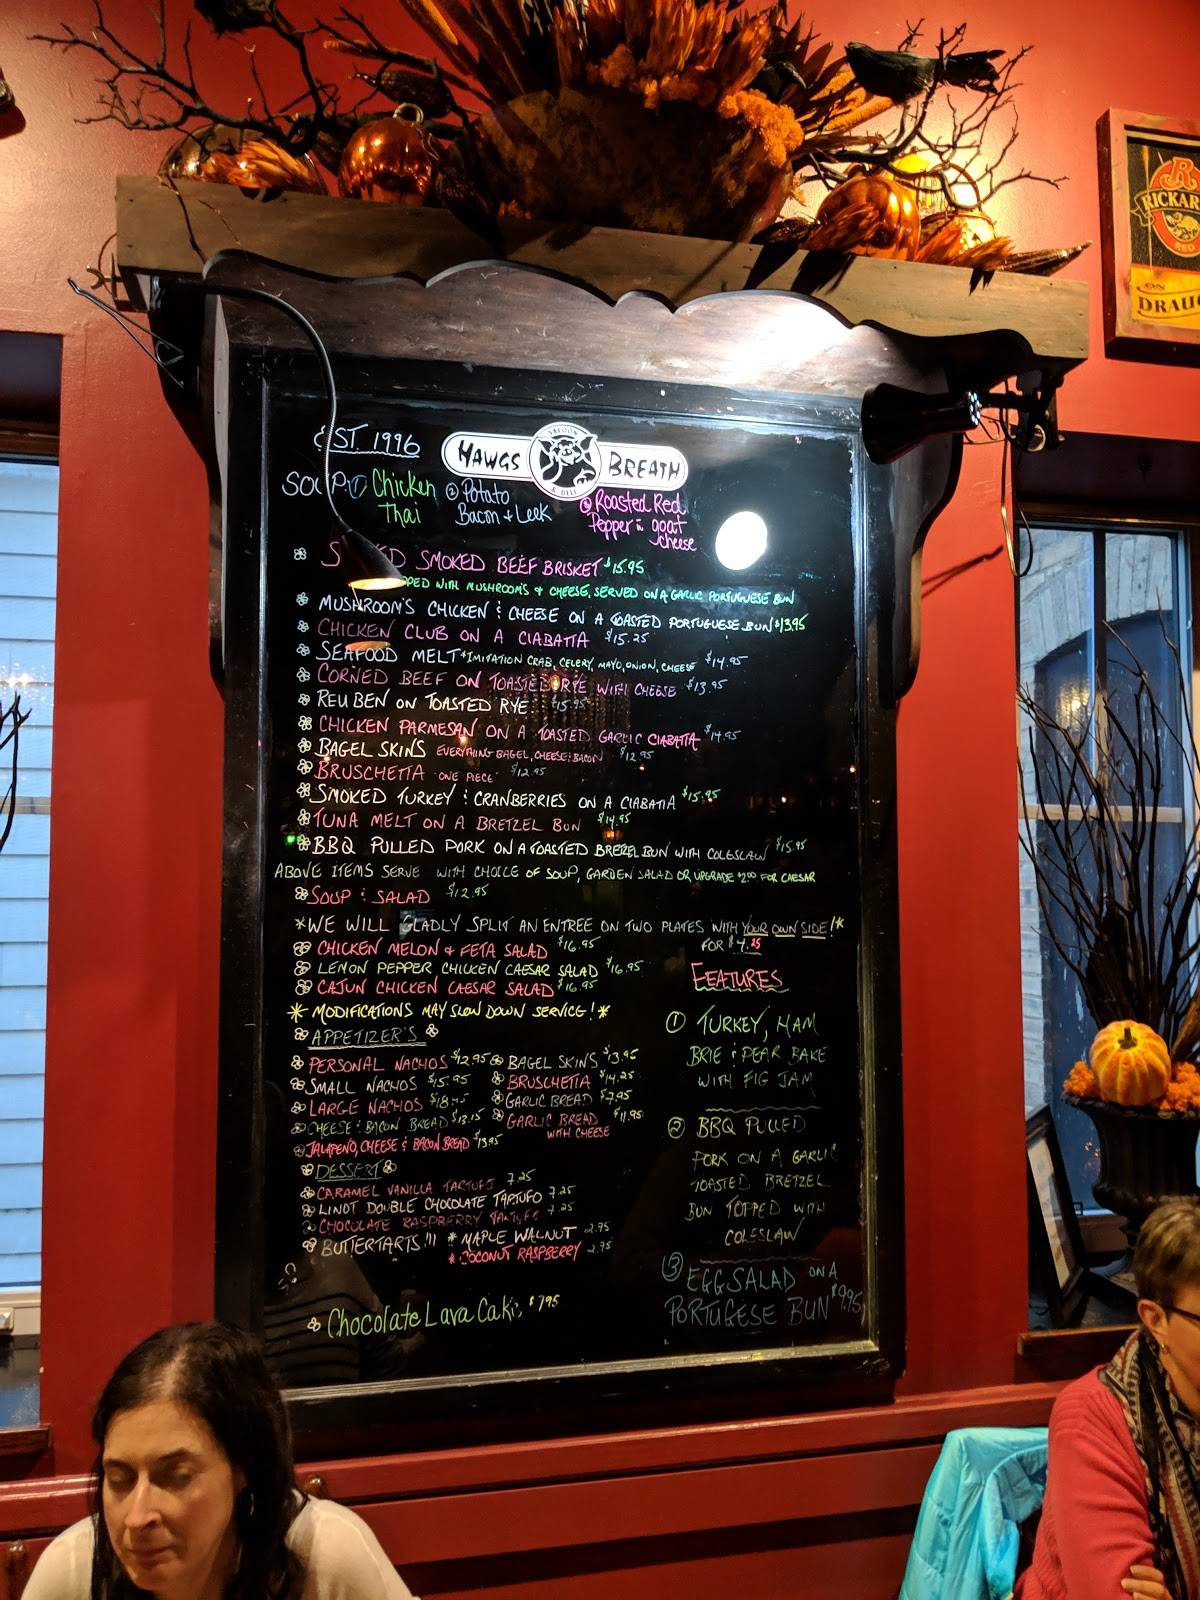 EST. 1996
SALOON
HAWGS BREATH
& DELI
SOUP ① Chicken Thai
② Potato Bacon + Leek
③ Roasted Red Pepper & goat cheese
SMOKED BEEF BRISKET $15.95
WITH MUSHROOM'S & CHEESE, SERVED ON A GARLIC PORTUGUESE BUN
MUSHROOM'S CHICKEN & CHEESE ON A TOASTED PORTUGUESE BUN $13.95
CHICKEN CLUB ON A CIABATTA $15.25
SEAFOOD MELT *IMITATION CRAB, CELERY, MAYO, ONION, CHEESE $14.95
CORNED BEEF ON TOASTED RYE WITH CHEESE $13.95
REUBEN ON TOASTED RYE $15.95
CHICKEN PARMESAN ON A TOASTED GARLIC CIABATTA $14.95
BAGEL SKINS EVERYTHING BAGEL, CHEESE & BACON $12.95
BRUSCHETTA "ONE PIECE" $12.95
SMOKED TURKEY & CRANBERRIES ON A CIABATTA $15.95
TUNA MELT ON A BRETZEL BUN $14.95
BBQ PULLED PORK ON A TOASTED BREZEL BUN WITH COLESLAW $15.95
ABOVE ITEMS SERVE WITH CHOICE OF SOUP, GARDEN SALAD OR UPGRADE $2.00 FOR CAESAR
SOUP & SALAD $12.95
*WE WILL GLADLY SPLIT AN ENTREE ON TWO PLATES WITH YOUR OWN SIDE!*
FOR $4.25
CHICKEN MELON & FETA SALAD $16.95
LEMON PEPPER CHICKEN CAESAR SALAD $16.95
CAJUN CHICKEN CAESAR SALAD $16.95
* MODIFICATIONS MAY SLOW DOWN SERVICE! *
APPETIZER'S
PERSONAL NACHOS $12.95
SMALL NACHOS $15.95
LARGE NACHOS
CHEESE & BACON BREAD $13.15
JALAPENO, CHEESE & BACON BREAD $13.95
BAGEL SKINS $13.95
BRUSCHETTA $14.25
GARLIC BREAD $7.95
GARLIC BREAD $11.95
WITH CHEESE
DESSERT
CARAMEL VANILLA TARTUFO 7.25
LINDT DOUBLE CHOCOLATE TARTUFO 7.25
CHOCOLATE RASPBERRY TARTUFO 7.25
BUTTERTARTS!!! * MAPLE WALNUT 2.95
* COCONUT RASPBERRY 2.95
Chocolate Lava Cake $7.95
FEATURES
① TURKEY, HAM
BRIE & PEAR BAKE
WITH FIG JAM
② BBQ PULLED
PORK ON A GARLIC
TOASTED BRETZEL
BUN TOPPED WITH
COLESLAW
③ EGG SALAD ON A
PORTUGESE BUN $9.95
R
RICKAR
RED
ON
DRAU